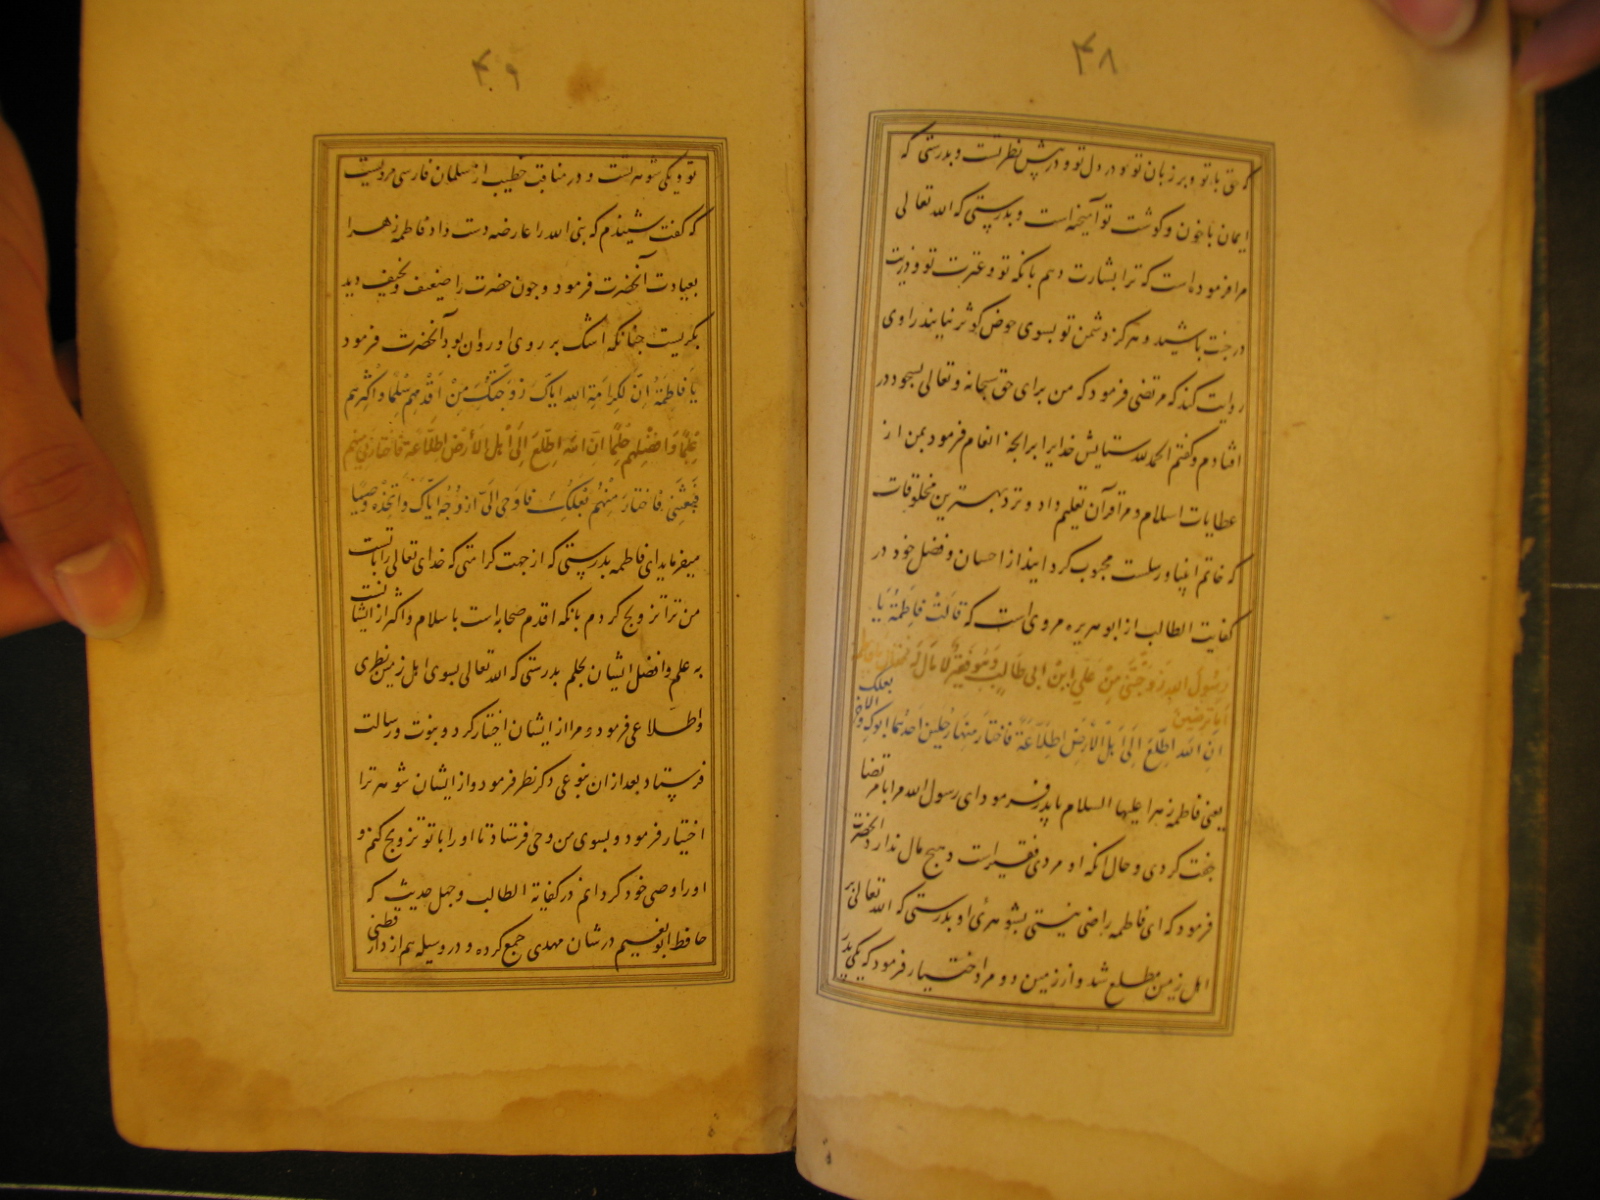 ۴۸
که حق با تو و بر زبان تو و در دل تو و در پیش نظر تست و بدرستی که
ایمان با خون و گوشت تو آمیخته است و بدرستی که الله تعالی
مرا فرموده است که ترا بشارت دهم بانکه تو و عترت تو و ذریت
در جنت باشید و هرگز دشمن تو بسوی حوض کوثر نیایند راوی
روایت کند که مرتضی فرمود که من برای حق سبحانه و تعالی بسجود در
افتادم و گفتم الحمد لله ستایش خدایرا برانچه انعام فرمود بمن از
عطایات اسلام و مرا قرآن تعلیم داد و نزد بهترین مخلوقات
که خاتم انبیا و رسلست محبوب گردانید از احسان و فضل خود در
کفایت الطالب از ابو هریره مروی است که قَالَتْ فَاطِمَةُ یَا
رَسُولَ اللهِ زَوَّجْتَنِی مِنْ عَلِیِّ ابْنِ ابی طَالِبٍ وَهُوَ فَقِیرٌ لَا مَالَ لَهُ فقال یا فاطمه
اَمَا تَرْضَیْنَ
اِنَّ اللهَ اِطَّلَعَ اِلَی اَهْلِ الْاَرْضِ اِطِّلَاعَةً فَاخْتَارَ مِنْهَا رَجُلَیْنِ اَحَدُهُمَا ابوکِ والاخر بعلک
یعنی فاطمه زهرا علیها السلام با پدر فرمود ای رسول الله مرا با مرتضا
جفت کردی و حال انکه او مردی فقیر است و هیچ مال ندارد انحضرت
فرمود که ای فاطمه راضی نیستی بشوهرئ او بدرستی که الله تعالی بر
اهل زمین مطلع شد و از زمین دو مرد اختیار فرمود که یکی پدر
۴۹
تو و یکی شوهر تست و در مناقب خطیب از سلمان فارسی مرویست
که گفت شنیدم که نبی الله را عارضه دست داد فاطمه زهرا
بعیادت آنحضرت فرمود و چون حضرت را ضعیف و نحیف دید
بگریست چنانکه اشک بر روی او روان بود آنحضرت فرمود
یَا فَاطِمَةُ اِنَّ لِکَرَامَةِ الله ایاکِ زَوَّجْتُکِ مِنْ اَقْدَمِهِم سِلْمًا وَاَکْثَرِهِم
عِلْمًا وَاَفْضَلِهِم حِلْمًا اِنَّ اللهَ اِطَّلَعَ اِلَی اَهْلِ الْاَرْضِ اِطِّلَاعَةً فَاخْتَارَنِی مِنْهُم
فَبَعَثَنِی فَاخْتَارَ مِنْهُم بَعْلَکِ فَاَوْحَی اِلَیَّ اَزَوِّجَهُ اِیَّاکِ وَاتَّخِذَهُ وَصِیًّا
میفرماید ای فاطمه بدرستی که از جهت کرامتی که خدای تعالی را با تست
من ترا تزویج کردم بانکه اقدم صحابه است باسلام و اکثر از ایشانست
به علم و افضل ایشان بحلم بدرستی که الله تعالی بسوی اهل زمین نظری
و اطلاعی فرمود و مرا از ایشان اختیار کرد و بنوت و رسالت
فرستاد بعد از ان بنوعی دکر نظر فرمود و از ایشان شوهر ترا
اختیار فرمود و بسوی من وحی فرستاد تا او را با تو تزویج کنم و
او را وصی خود گردانم در کفایة الطالب و چهل حدیث که
حافظ ابو نعیم در شان مهدی جمع کرده و در وسیله هم از دارقطنی